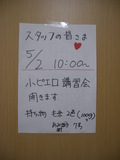 スタッフの皆さま
5/2 10:00〜
小ピエロ講習会
開きます
持ち物 毛糸 2色(100g)
7号